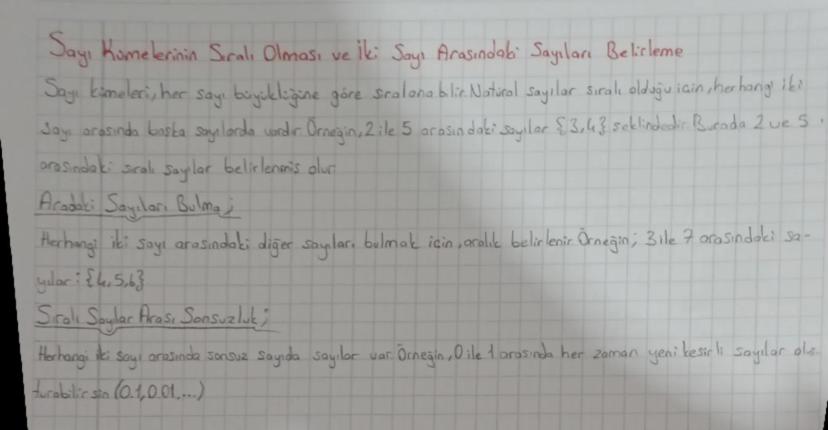 Sayı Kümelerinin Sıralı Olması ve İki Sayı Arasındaki Sayıları Belirleme
Sayı kümeleri, her sayı büyüklüğüne göre sıralanabilir. Natural sayılar sıralı olduğu için, herhangi iki
sayı arasında başka sayılarda vardır. Örneğin, 2 ile 5 arasındaki sayılar {3,4} şeklindedir. Burada 2 ve 5
arasındaki sıralı sayılar belirlenmiş olur.
Aradaki Sayıları Bulma;
Herhangi iki sayı arasındaki diğer sayıları bulmak için, aralık belirlenir. Örneğin; 3 ile 7 arasındaki sa-
yılar: {4,5,6}
Sıralı Sayılar Arası Sonsuzluk;
Herhangi iki sayı arasında sonsuz sayıda sayılar var. Örneğin, 0 ile 1 arasında her zaman yeni kesirli sayılar oluş-
turabilirsin (0.1, 0.01, ...)